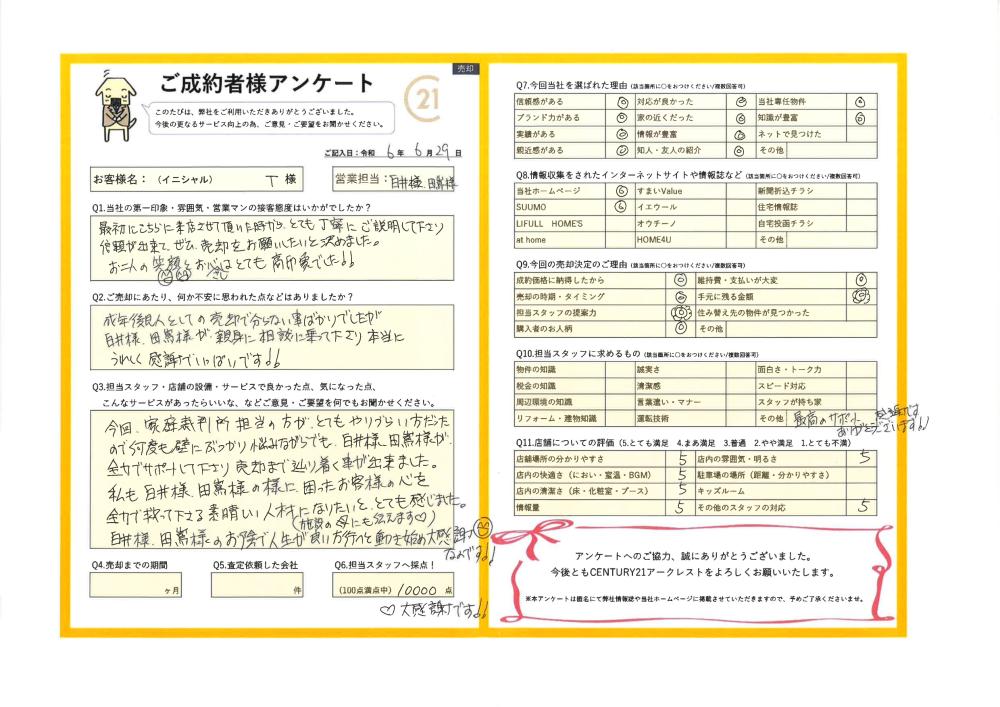 売却
ご成約者様アンケート
21
このたびは、弊社をご利用いただきありがとうございました。
今後の更なるサービス向上の為、ご意見・ご要望をお聞かせください。
ご記入日:令和 6年 6月 29日
お客様名:(イニシャル) T 様
営業担当: 臼井様、田嶌様
Q1.当社の第一印象・雰囲気・営業マンの接客態度はいかがでしたか?
最初にこちらに来店させて頂いた時から、とても丁寧にご説明して下さり
信頼が出来て、ぜひ、売却をお願いしたいと決めました。
お二人の笑顔とお心はとても高印象でした!!
Q2.ご売却にあたり、何か不安に思われた点などはありましたか?
成年後見人としての売却で分らない事ばかりでしたが
臼井様、田嶌様が、親身に相談に乗って下さり本当に
うれしく感謝でいっぱいです!!
Q3.担当スタッフ・店舗の設備・サービスで良かった点、気になった点、
こんなサービスがあったらいいな、などご意見・ご要望を何でもお聞かせください。
今回、家庭裁判所担当の方が、とてもやりづらい方だった
ので何度も壁にぶつかり悩みながらでも、臼井様、田嶌様が、
全力でサポートして下さり売却まで辿り着く事が出来ました。
私も臼井様、田嶌様の様に、困ったお客様の心を
全力で救って下さる素晴しい人材になりたいと、とても感じました。
(施設の母にも伝えます♡)
臼井様、田嶌様のお陰で人生が良い方行へと動き始め大感謝
なのです!!
Q4.売却までの期間
ヶ月
Q5.査定依頼した会社
件
Q6.担当スタッフへ採点!
(100点満点中) 10000 点
♡大感謝です!!
Q7.今回当社を選ばれた理由(該当箇所に○をおつけください/複数回答可)
信頼感がある ○ 対応が良かった ○ 当社専任物件 ○
ブランド力がある ○ 家の近くだった ○ 知識が豊富 ○
実績がある ○ 情報が豊富 ○ ネットで見つけた
親近感がある ○ 知人・友人の紹介 ○ その他
Q8.情報収集をされたインターネットサイトや情報誌など(該当箇所に○をおつけください/複数回答可)
当社ホームページ ○ すまいValue 新聞折込チラシ
SUUMO ○ イエウール 住宅情報誌
LIFULL HOME'S オウチーノ 自宅投函チラシ
at home HOME4U その他
Q9.今回の売却決定のご理由(該当箇所に○をおつけください/複数回答可)
成約価格に納得したから ○ 維持費・支払いが大変 ○
売却の時期・タイミング ○ 手元に残る金額 ○
担当スタッフの提案力 ○ 住み替え先の物件が見つかった
購入者のお人柄 ○ その他
Q10.担当スタッフに求めるもの(該当箇所に○をおつけください/複数回答可)
物件の知識 誠実さ 面白さ・トーク力
税金の知識 清潔感 スピード対応
周辺環境の知識 言葉遣い・マナー スタッフが持ち家
リフォーム・建物知識 運転技術 その他 最高のサポート
ありがとうございます!!
Q11.店舗についての評価(5.とても満足 4.まあ満足 3.普通 2.やや満足 1.とても不満)
店舗場所の分かりやすさ 5 店内の雰囲気・明るさ 5
店内の快適さ(におい・室温・BGM) 5 駐車場の場所(距離・分かりやすさ)
店内の清潔さ(床・化粧室・ブース) 5 キッズルーム
情報量 5 その他のスタッフの対応 5
アンケートへのご協力、誠にありがとうございました。
今後ともCENTURY21アークレストをよろしくお願いいたします。
※本アンケートは匿名にて弊社情報誌や当社ホームページに掲載させていただきますので、予めご了承くださいませ。